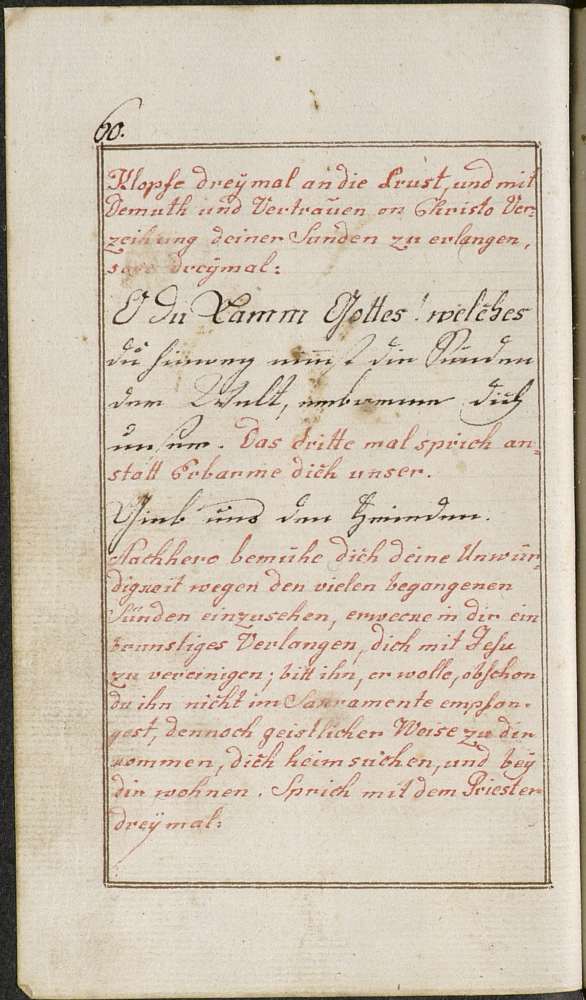 60.
Klopfe dreÿmal an die Brust, und mit
Demuth und Vertraüen on Christo Ver=
zeihung deiner Sunden zu erlangen,
sage dreÿmal:
O du Lamm Gottes! welches
du hinweg nim̄st die Sünden
der Welt, erbarme dich
unser. Das dritte mal sprich an=
statt Erbarme dich unser.
Gieb uns den Frieden.
Nachhero bemühe dich deine Unwür=
digkeit wegen den vielen begangenen
Sünden einzusehen, erwecke in dir ein
brunstiges Verlangen, dich mit Jesu
zu vereinigen; bitt ihn, er wolle, obschon
du ihn nicht im Sakramente empfan=
gest, dennoch geistlicher Weise zu dir
kommen, dich heimsuchen, und beÿ
dir wohnen. Sprich mit dem Priester
dreÿmal: